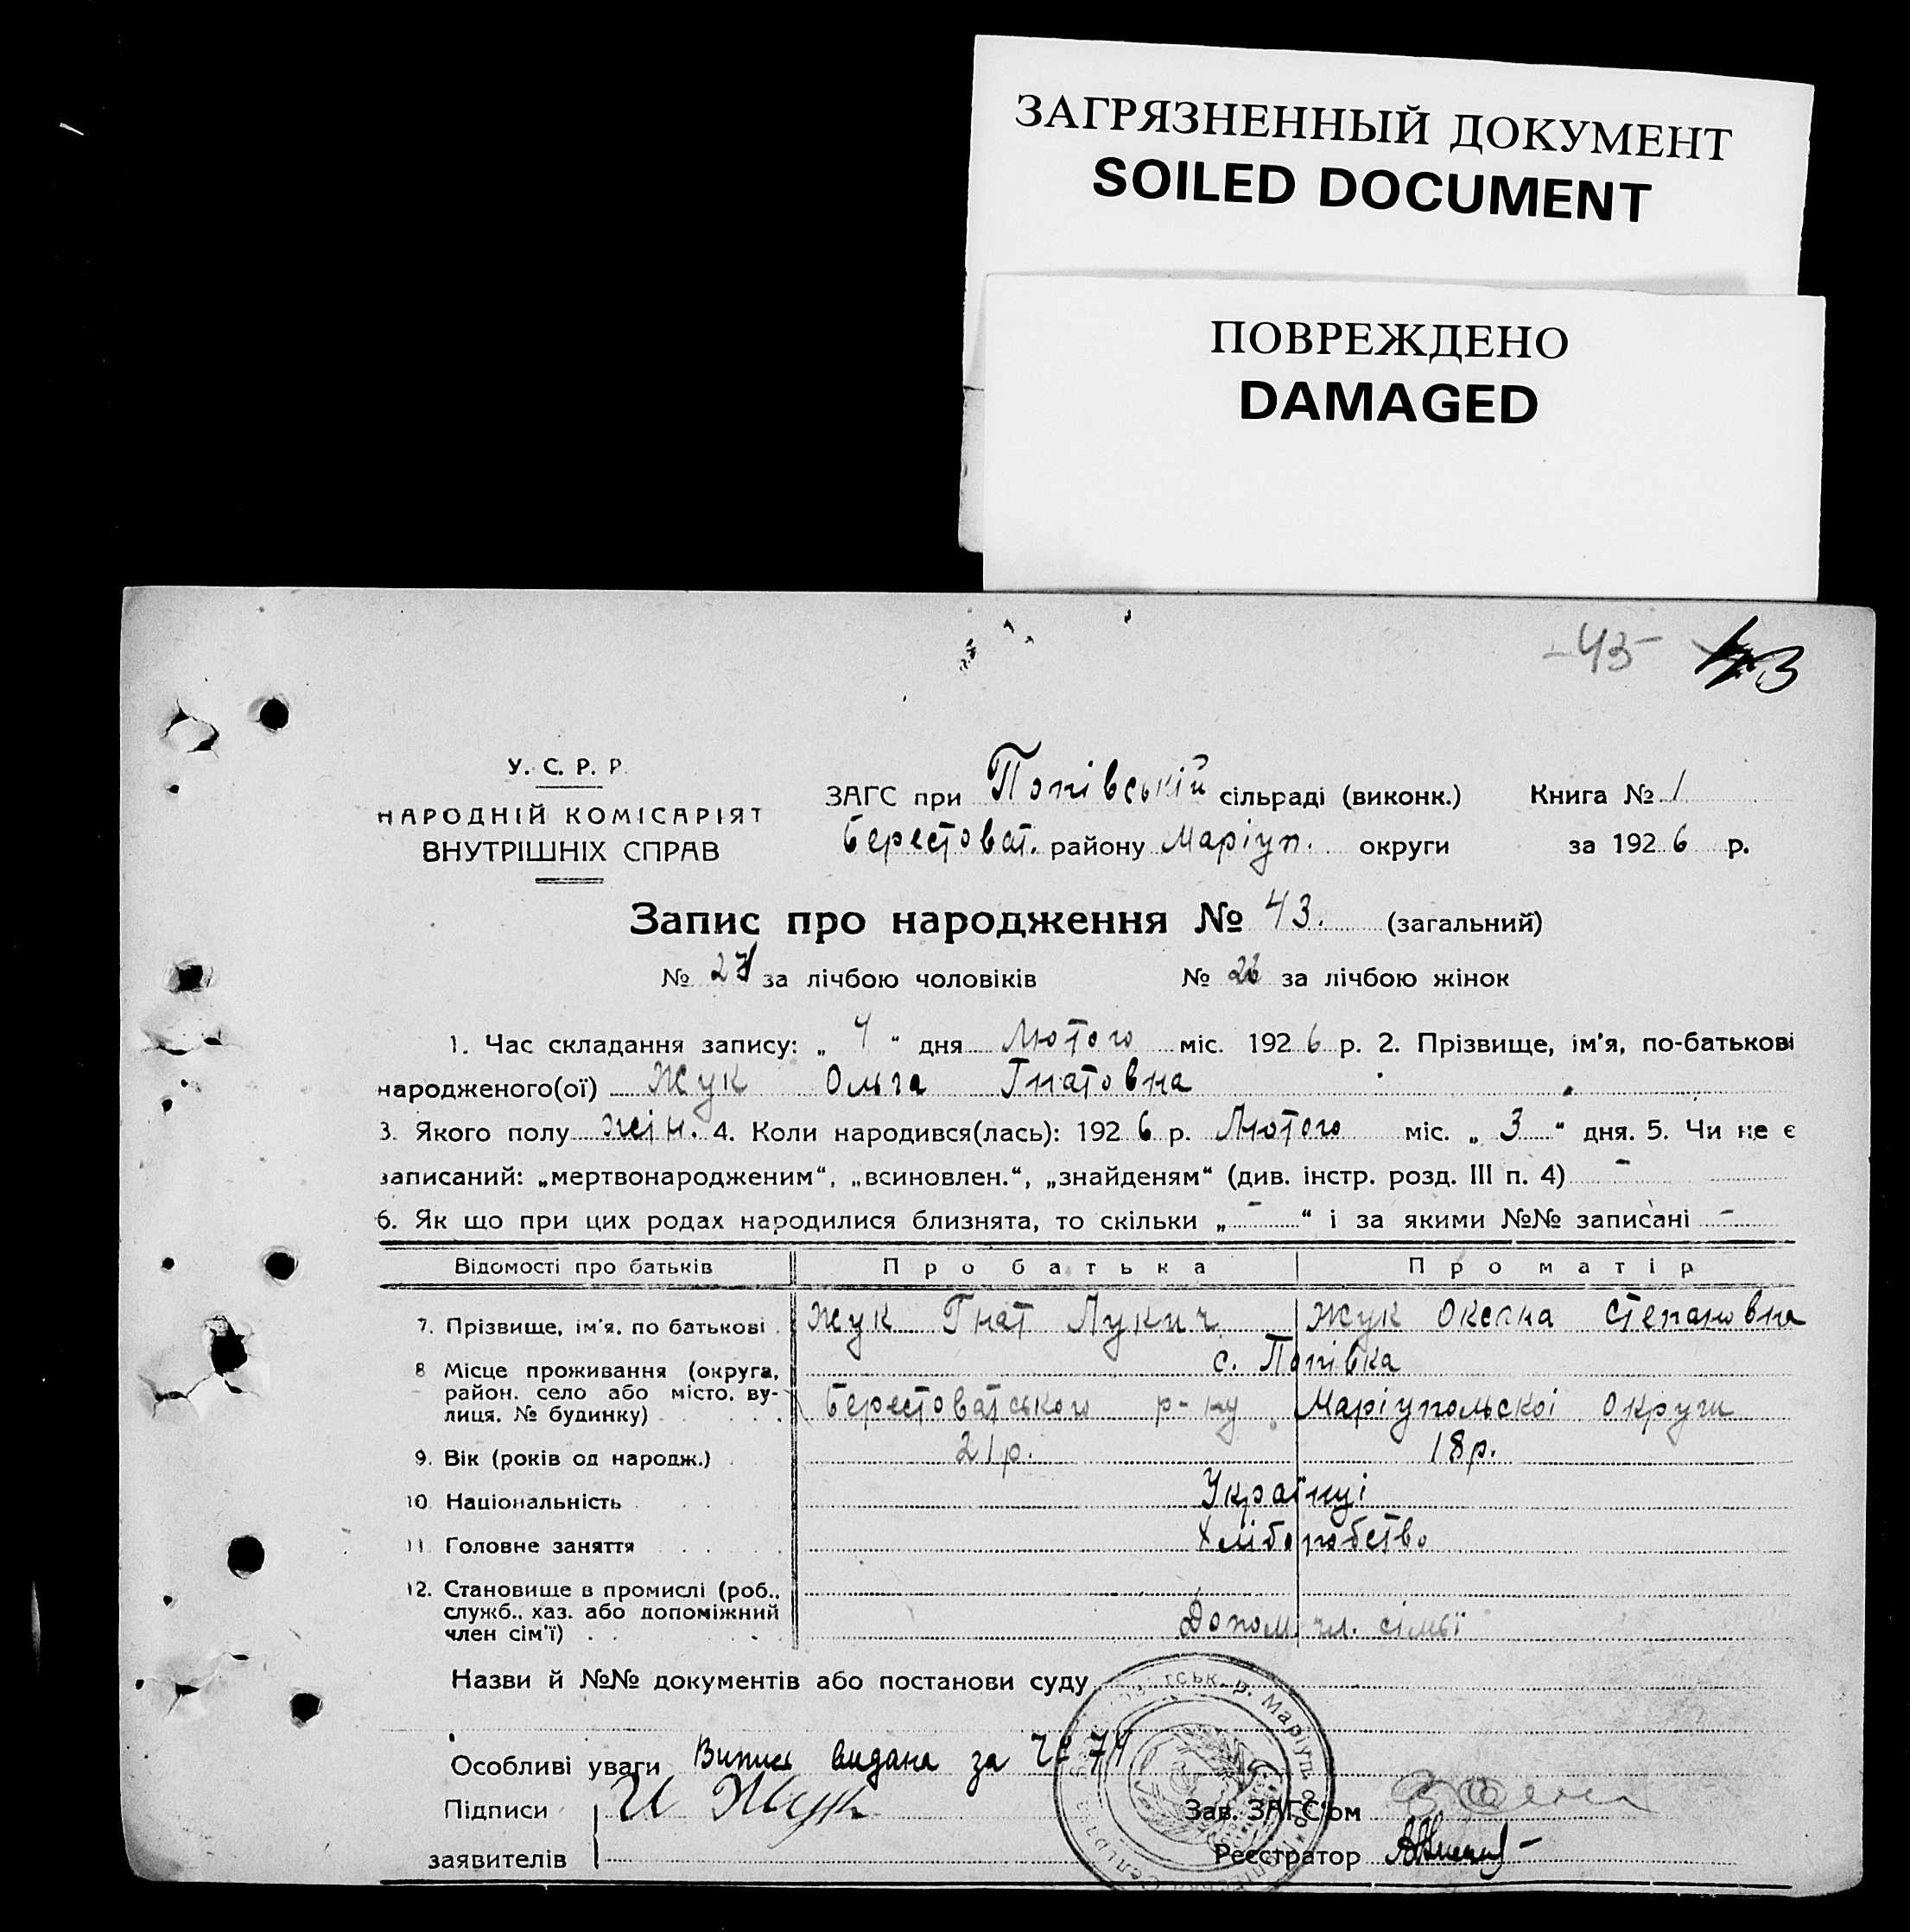 ЗАГРЯЗНЕННЫЙ ДОКУМЕНТ
SOILED DOCUMENT
ПОВРЕЖДЕНО
DAMAGED
-43- 43
У. С. Р. Р.
НАРОДНІЙ КОМІСАРІЯТ
ВНУТРІШНІХ СПРАВ
ЗАГС при Попівській сільраді (виконк.) Книга № 1
Берестоват. району Маріуп. округи за 1926 р.
Запис про народження № 43. (загальний)
№ за лічбою чоловіків № за лічбою жінок
1. Час складання запису: „ 4 “ дня Лютого міс. 1926 р. 2. Прізвище, ім'я, по-батькові
народженого(ої) Жук Ольга Гнатовна
3. Якого полу жін. 4. Коли народився(лась): 1926 р. Лютого міс. „ 3 “ дня. 5. Чи не є
записаний: „мертвонародженим“, „всиновлен.“, „знайденям“ (див. інстр. розд. III п. 4) -
6. Як що при цих родах народилися близнята, то скільки „ - “ і за якими №№ записані -
Відомості про батьків Про батька Про матір
7. Прізвище, ім'я, по батькові Жук Гнат Лукич Жук Оксана Степановна
8 Місце проживання (округа, с. Попівка
район, село або місто, ву- Берестоватського р-ну Маріупольскоі округи
лиця, № будинку)
9. Вік (років од народж.) 21р. 18р.
10. Національність Українці
11. Головне заняття Хліборобство
12. Становище в промислі (роб.,
служб., хаз. або допоміжний
член сім'ї) Допом. чл. сімьї
Назви й №№ документів або постанови суду
Особливі уваги Випис видана за № 74
Підписи И Жук Зав. ЗАГС'ом
заявителів Реєстратор